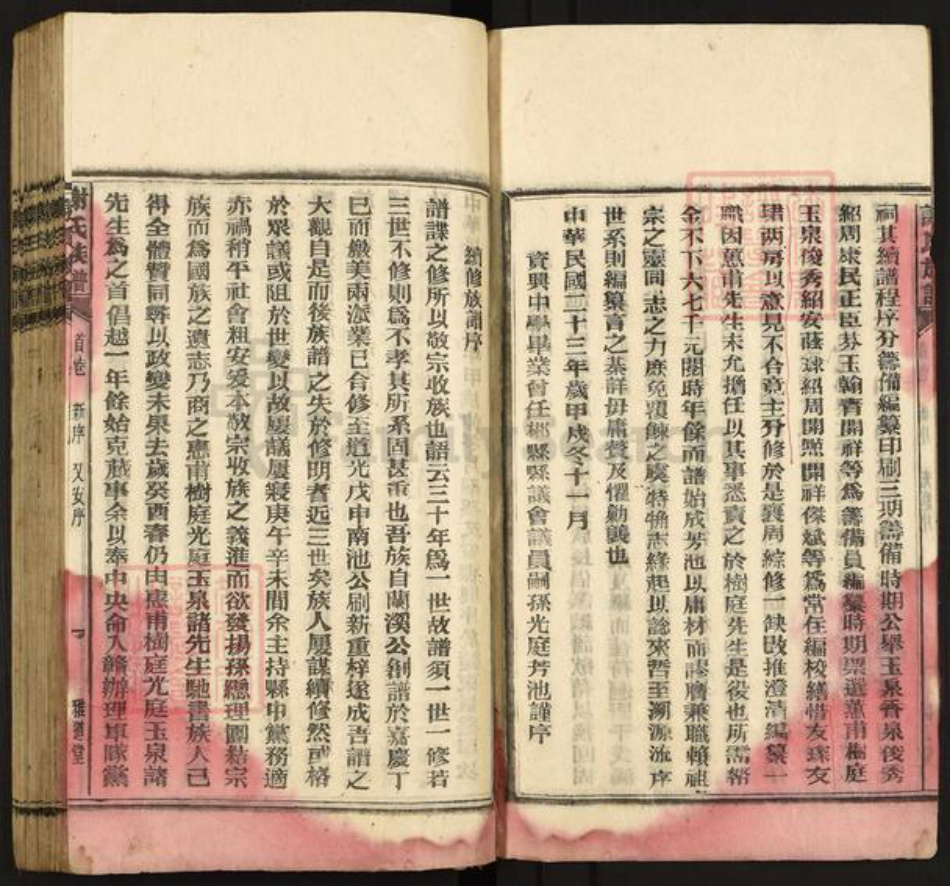 祠其續譜程序分籌備編纂印刷三期籌備時期公舉玉泉香泉俊秀
紹周康民正臣芬玉翰齊開祥等爲籌備員編纂時期票選蕙甫樹庭
玉泉俊秀紹安蔭球紹周開煕開祥傑斌等爲常任編校繕惜友球友
珺兩房以意見不合竟主分修於是襄周綜修一缺改推澄清編纂一
職因蕙甫先生未允擔任以其事悉責之於樹庭先生是役也所需幣
金不下六七千元閱時年餘而譜始成芳池以庸材而謬膺兼職賴祖
宗之靈同志之力庶免覆餗之虞特備志緣起以諗來哲至溯源流序
世系則編纂言之綦詳毋庸贅及懼勦襲也
中華民國二十三年歲甲戌冬十一月
資興中學畢業曾任郴縣縣議會議員嗣孫光庭芳池謹序
續修族譜序
譜諜之修所以敬宗收族也語云三十年爲一世故譜須一世一修若
三世不修則爲不孝其所系固甚重也吾族自蘭溪公創譜於嘉慶丁
巳而繼美兩派業已合修至道光戊申南池公刷新重梓遂成吾譜之
大觀自是而後族譜之失於修明者近三世矣族人屢謀續修然或格
於衆議或阻於世變以故屢議屢寢庚午辛未間余主持縣中黨務適
亦禍稍平社會粗安爰本敬宗收族之義進而欲發揚孫總理團結宗
族而爲國族之遺志乃商之惠甫樹庭光庭玉泉諸先生馳書族人已
得全體贊同尋以政變未果去歲癸酉春仍由惠甫樹庭光庭玉泉諸
先生爲之首倡越一年餘始克蕆事余以奉中央命入贛辦理軍隊黨
謝氏族譜
首卷 新序 又安序
雅藎堂